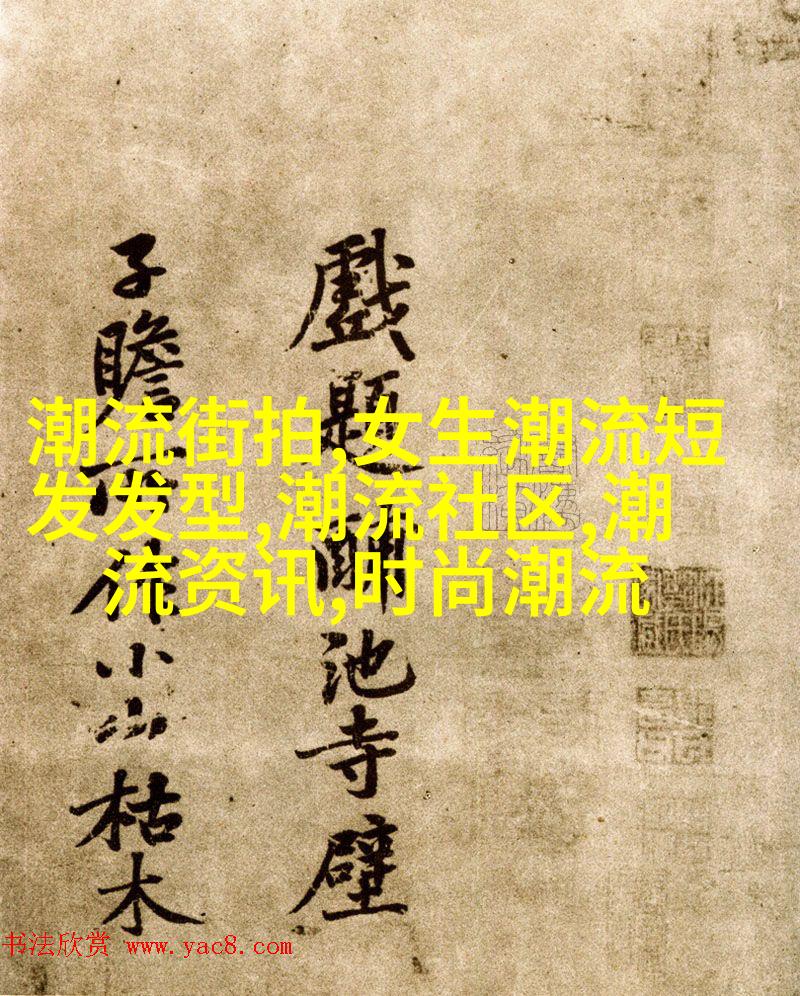 戲題池寺壁
子瞻所作小山枯木
潮流街拍,女生潮流短
发发型,潮流社区,潮
流资讯,时尚潮流
书法欣赏 www.yac8.com